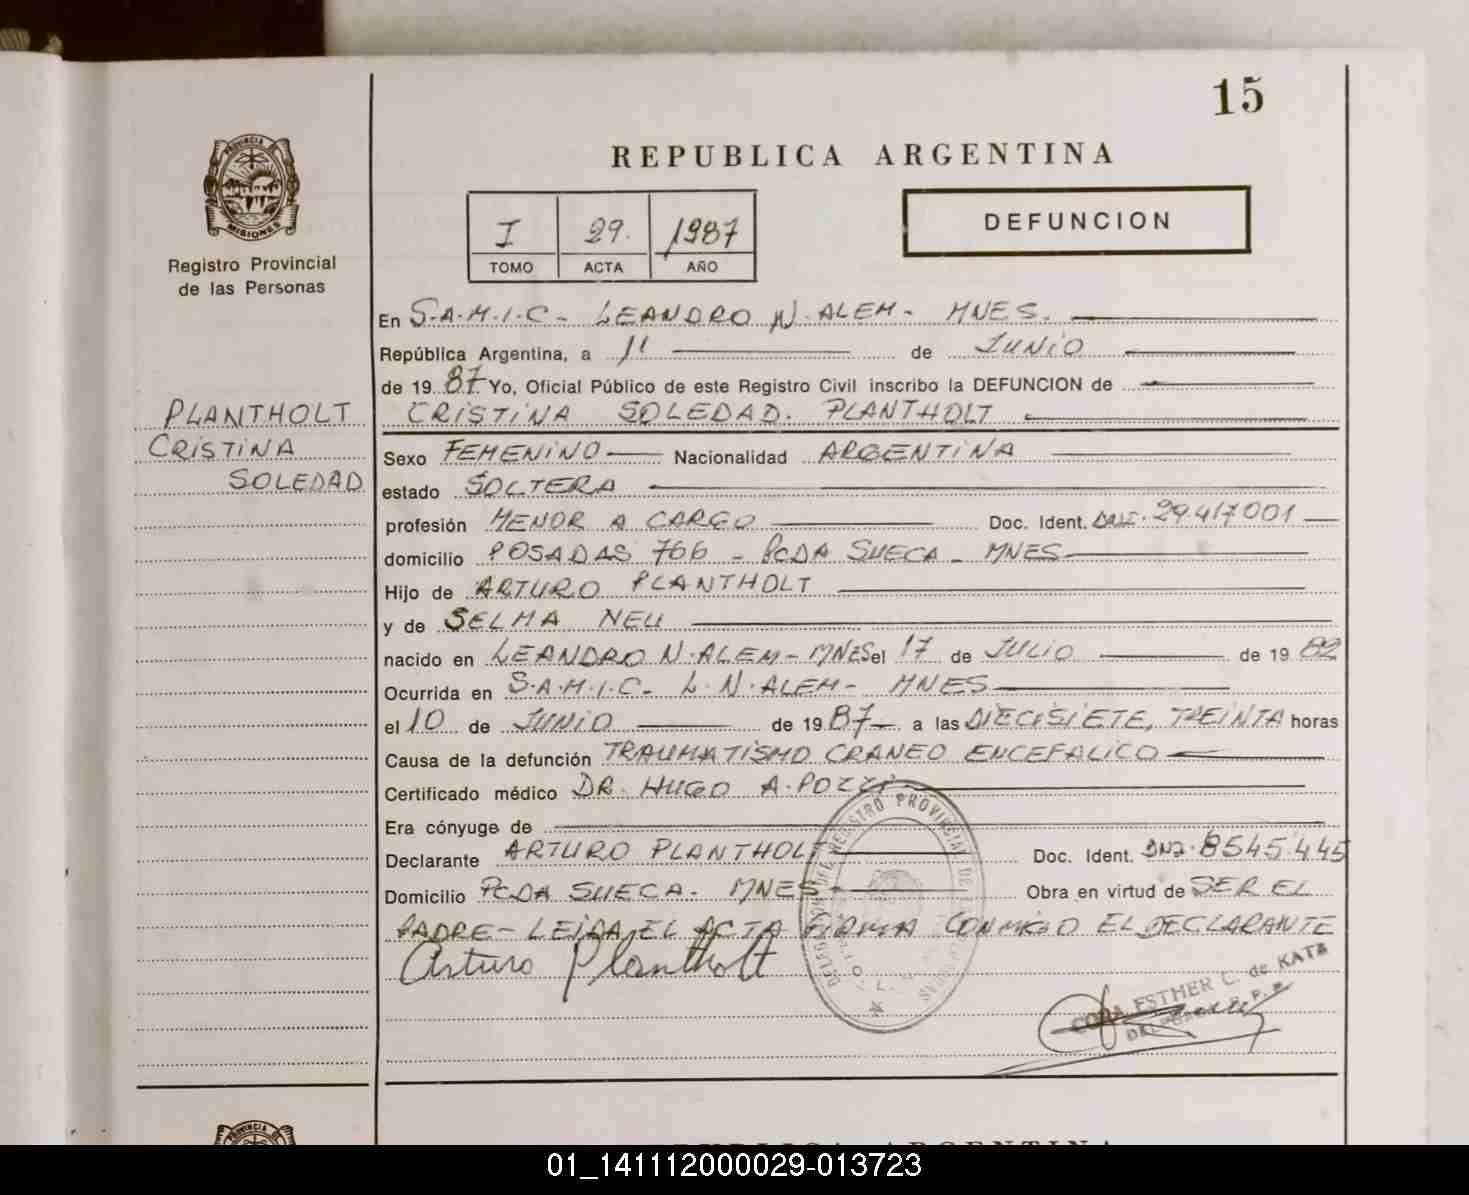 15
PROVINCIA DE
MISIONES
Registro Provincial
de las Personas
REPUBLICA ARGENTINA
I 29. 1987
TOMO ACTA AÑO
DEFUNCION
En S.A.M.I.C- LEANDRO N.ALEM- MNES.
República Argentina, a 11 de JUNIO
de 19 87 Yo, Oficial Público de este Registro Civil inscribo la DEFUNCION de
CRISTINA SOLEDAD. PLANTHOLT
PLANTHOLT
CRISTINA
SOLEDAD
Sexo FEMENINO Nacionalidad ARGENTINA
estado SOLTERA
profesión MENOR A CARGO Doc. Ident. DNI. 29.417001
domicilio POSADAS 766 - PCDA SUECA - MNES
Hijo de ARTURO PLANTHOLT
y de SELMA NEU
nacido en LEANDRO N.ALEM-MNES el 17 de JULIO de 19 82
Ocurrida en S.A.M.I.C- L.N.ALEM- MNES
el 10 de JUNIO de 19 87 a las DIECISIETE, TREINTA horas
Causa de la defunción TRAUMATISMO CRANEO ENCEFALICO
Certificado médico DR. HUGO A.POZZI
Era cónyuge de
Declarante ARTURO PLANTHOLT Doc. Ident. DNI. 8545.445
Domicilio PCDA SUECA. MNES Obra en virtud de SER EL
PADRE- LEIDA EL ACTA FIRMA CONMIGO EL DECLARANTE
Arturo Plantholt
REGISTRO PROVINCIAL DE
ESTHER C. de KATZ
REPUBLICA ARGENTINA
01_141112000029-013723